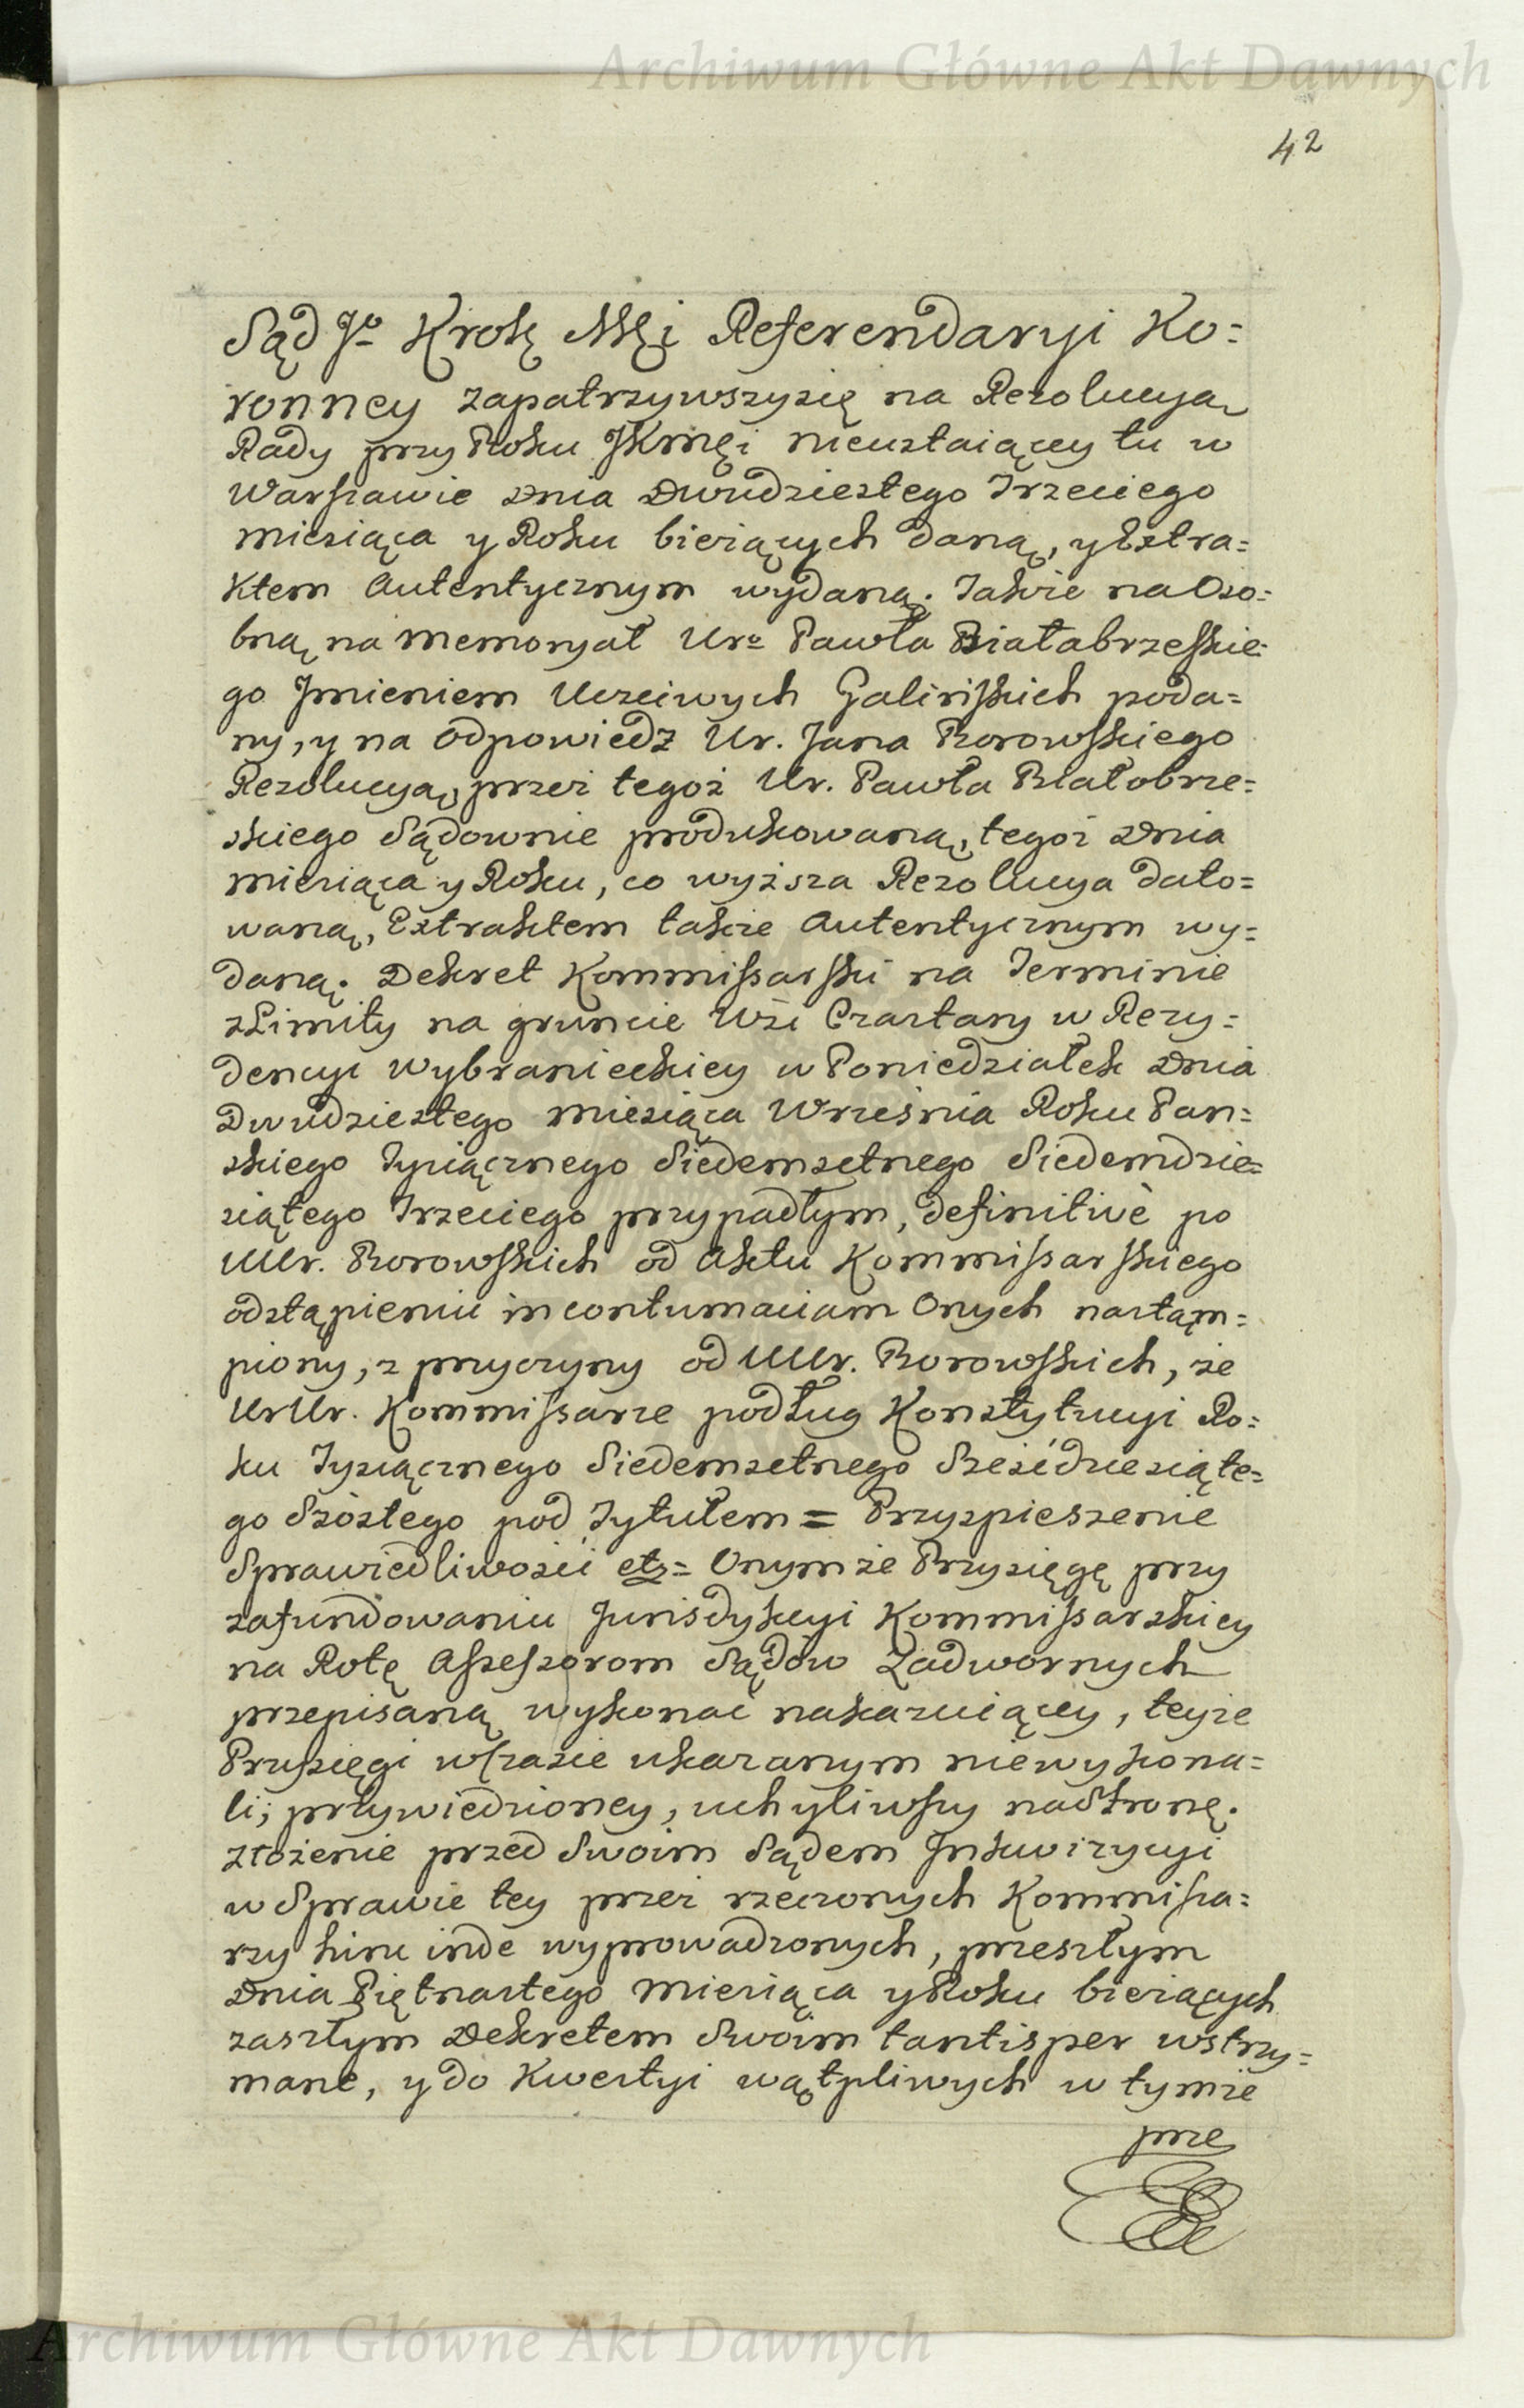 Archiwum Główne Akt Dawnych
42
Sąd Jo Krolę Męi Referendaryi Ko=
ronney zapatrzywszysię na Rezolucyą
Rady przy Boku JKmęi nieustaiącey tu w
Warszawie Dnia Dwudziestego Trzeciego
miesiąca y Roku bieżących daną, y Extra=
ktem Autentycznym wydaną. Także na Oso=
bną na memoryał Uro Pawła Białabrzeskie=
go Jmieniem Uczciwych Galińskich poda=
ny, y na odpowiedz Ur. Jana Borowskiego
Rezolucyą, przez tegoż Ur. Pawła Białobrze=
skiego Sądownie produkowaną, tegoż Dnia
miesiąca y Roku, co wyższa Rezolucya dato=
waną, Extraktem także Autentycznym wy=
daną. Dekret Kommissarski na Terminie
z Limity na gruncie Wsi Czartary w Rezy=
dencyi Wybranieckiey w Poniedziałek Dnia
Dwudziestego miesiąca Września Roku Pan=
skiego Tysiącznego Siedemsetnego Siedemdzie=
siątego Trzeciego przypadłym, definitivè po
UUr. Borowskich od Aktu Kommissarskiego
odstąpieniu in contumaciam Onych nastąm=
piony, z przyczyny od UUr. Borowskich, że
UrUr. Kommissarze podług Konstytucyi Ro=
ku Tysiącznego Siedemsetnego Sześćdziesiąte=
go Szóstego pod Tytułem = Przyspieszenie
Sprawiedliwości etc = Onymże Przysięgę przy
zafundowaniu Jurisdykcyi Kommissarskiey
na Rotę Assessorom Sądów Zadwornych
przepisaną wykonać nakazuiącey, teyże
Przysięgi w Czasie ukazanym niewykona=
li, przywiedzioney, uchyliwszy na Stronę.
złożenie przed Swoim Sądem Jnkwizycyi
w Sprawie tey przez rzeczonych Kommissa=
rzy hinc inde wyprowadzonych, przeszłym
Dnia Piętnastego miesiąca y Roku bieżących
zaszłym Dekretem Swoim tantisper wstrzy=
mane, y do Kwestyi wątpliwych w tymże
prze
Archiwum Główne Akt Dawnych